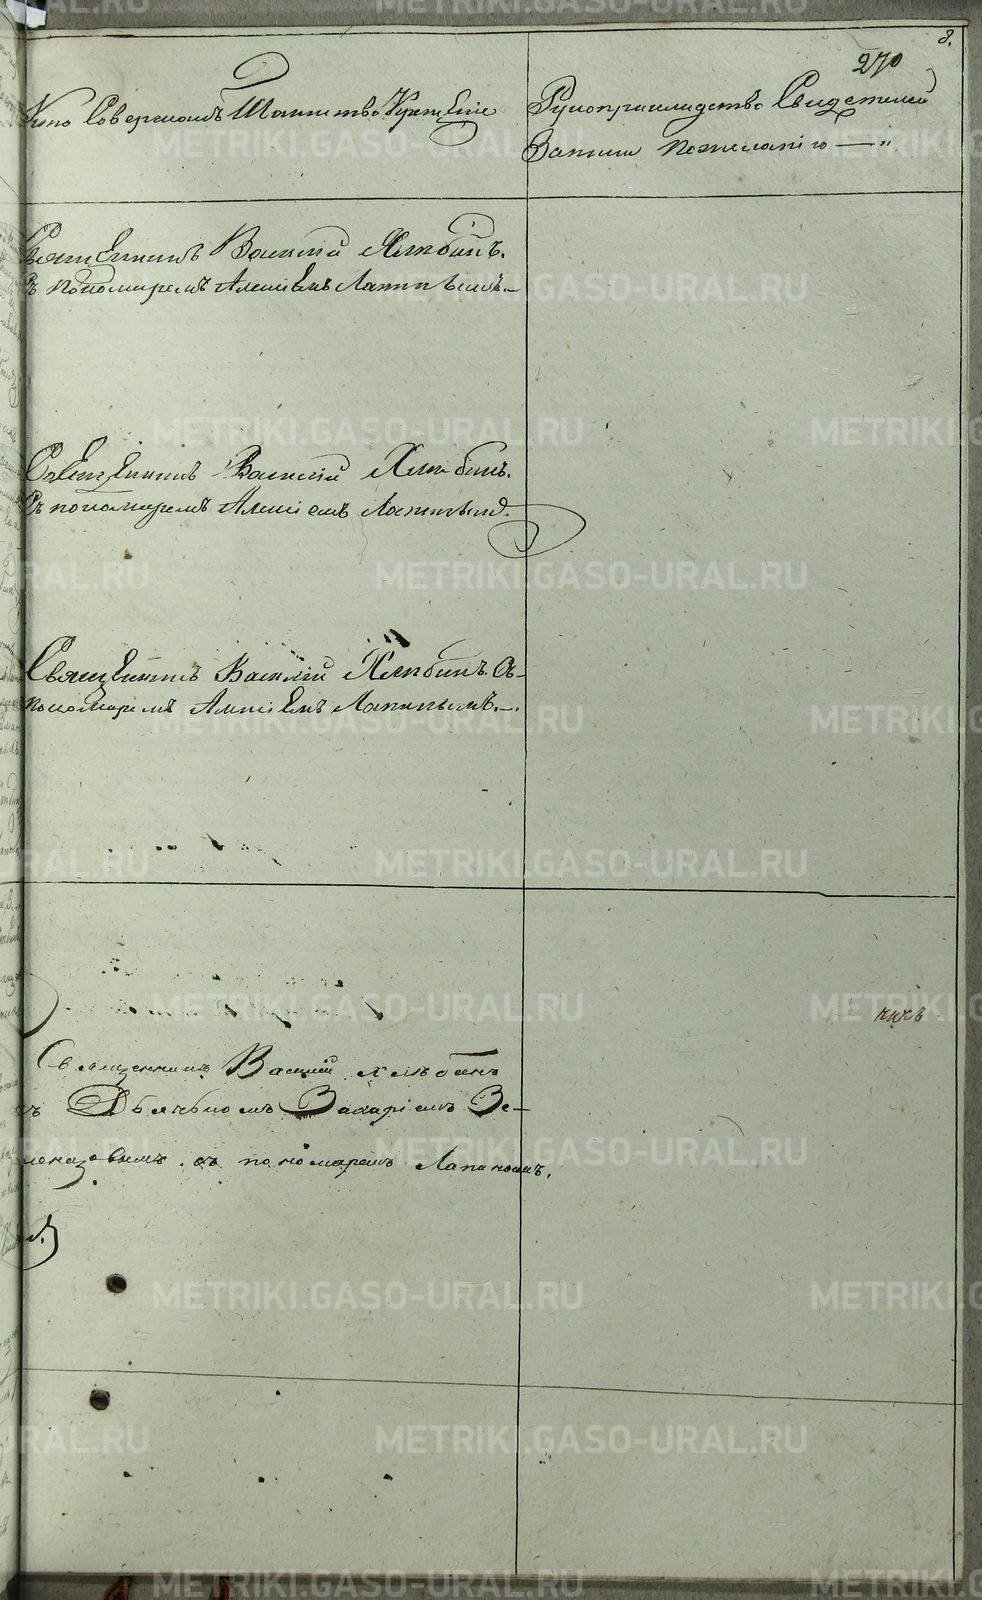 8.
270
Кто Совершалъ Таинство Крещенiе
Рукоприкладство Свидетелей
Записи По желанiю — „
Священникъ Василiй Хлѣбинъ.
Съ пономаремъ Алексiемъ Лапинымъ. —
Священникъ Василiй Хлѣбинъ.
Съ пономаремъ Алексiемъ Лапинымъ.
Священникъ Василiй Хлѣбинъ. Съ
пономаремъ Алексiемъ Лапинымъ. —.
Священникъ Василiй Хлѣбинъ
съ Дьячкомъ Захарiемъ
съ пономаремъ Лапинымъ.
METRIKI.GASO-URAL.RU